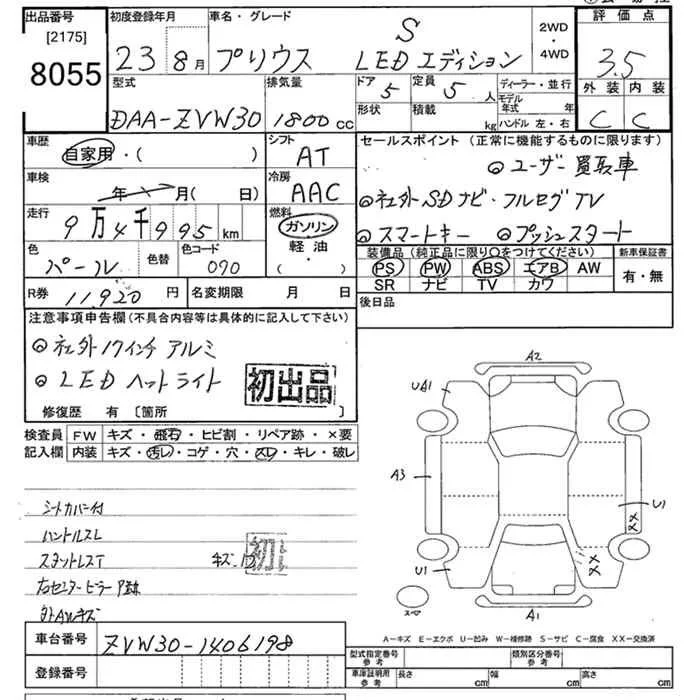 出品番号
[2175]
8055
初度登録年月
23 8月
車名・グレード
プリウス S LEDエディション
2WD
・
4WD
評価点
3.5
外装 内装
C C
型式
DAA-ZVW30
排気量
1800cc
ドア 5
定員 5人
形状
積載 kg
ディーラー・並行
モデル年式 年
ハンドル 左・右
車歴
自家用・( )
シフト
AT
車検
年 月( 日)
冷房
AAC
走行
9万4千995km
燃料
ガソリン
軽油
・( )
色
パール
色替
色コード
070
R券 11,920円
名変期限 月 日
セールスポイント (正常に機能するものに限ります)
◎ユーザー買取車
◎社外SDナビ・フルセグTV
◎スマートキー ◎プッシュスタート
装備品(純正品に限り○をつけてください)
PS PW ABS エアB AW
SR ナビ TV カワ
新車保証書
有・無
後日品
注意事項申告欄(不具合内容等は具体的に記入して下さい)
◎社外17インチアルミ
◎LEDヘットライト
初出品
修復歴 有 〔箇所
検査員
記入欄
FW キズ・飛石・ヒビ割・リペア跡・×要
内装 キズ・汚レ・コゲ・穴・スレ・キレ・破レ
シートカバー付
ハンドルスレ
スタットレスT
キズ・凹
初
右センターピラーP跡
外AWキズ
A2
UA1
A3
U1
XX
U1
XX
A1
スペア
A-キズ E-エクボ U-凹み W-補修跡 S-サビ C-腐食 XX-交換済
車台番号
ZVW30-1406198
登録番号
型式指定番号
参考
類別区分番号
参考
車庫証明用
参考
長さ cm
幅 cm
高さ cm